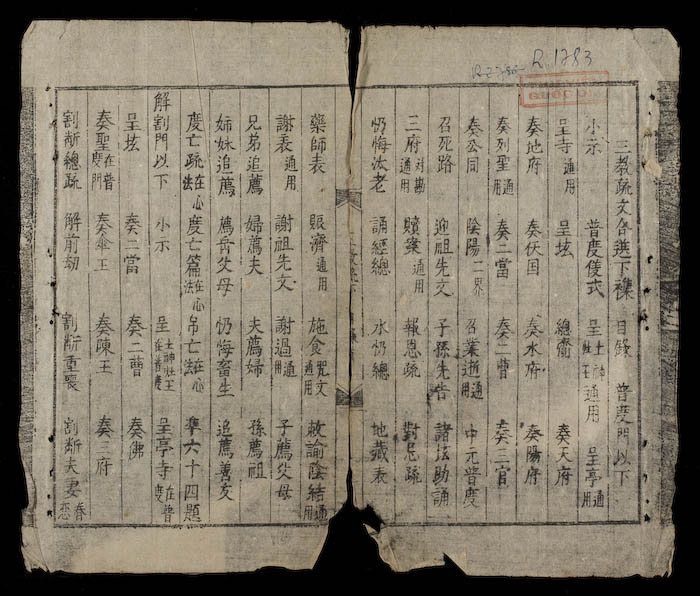 R.1783
三教疏文合選下集目錄 普度門以下
小示 普度儀式 呈土神灶王通用 呈亭通用
呈寺通用 呈垓 總齋 奏天府
奏地府 奏仸国 奏水府 奏陽府
奏列聖通用 奏二當 奏二曹 奏三官
奏公同 陰陽二界 召業逝通用 中元普度
召死路 迎祖先文 子孫先告 諸垓助誦
三府對勘通用 贖案通用 報恩疏 對忌疏
仍悔汰老 誦經總 水仍總 地藏表
藥師表 賑濟通用 施食咒文通用 敕諭陰結通用
謝表通用 謝祖先文 謝過通用 子薦父母
兄弟追薦 婦薦夫 夫薦婦 孫薦祖
姊妹追薦 薦岳父母 仍悔畜生 追薦善友
度亡疏在心法 度亡篇在心法 吊亡在心法 準六十四題
解割門以下 小示 呈土神灶王在普度 呈亭寺在普度
呈垓 奏二當 奏二曹 奏佛
奏聖在普度門 奏傘王 奏陳王 奏三府
割斷總疏 解前劫 割斷重喪 割斷夫妻春恋